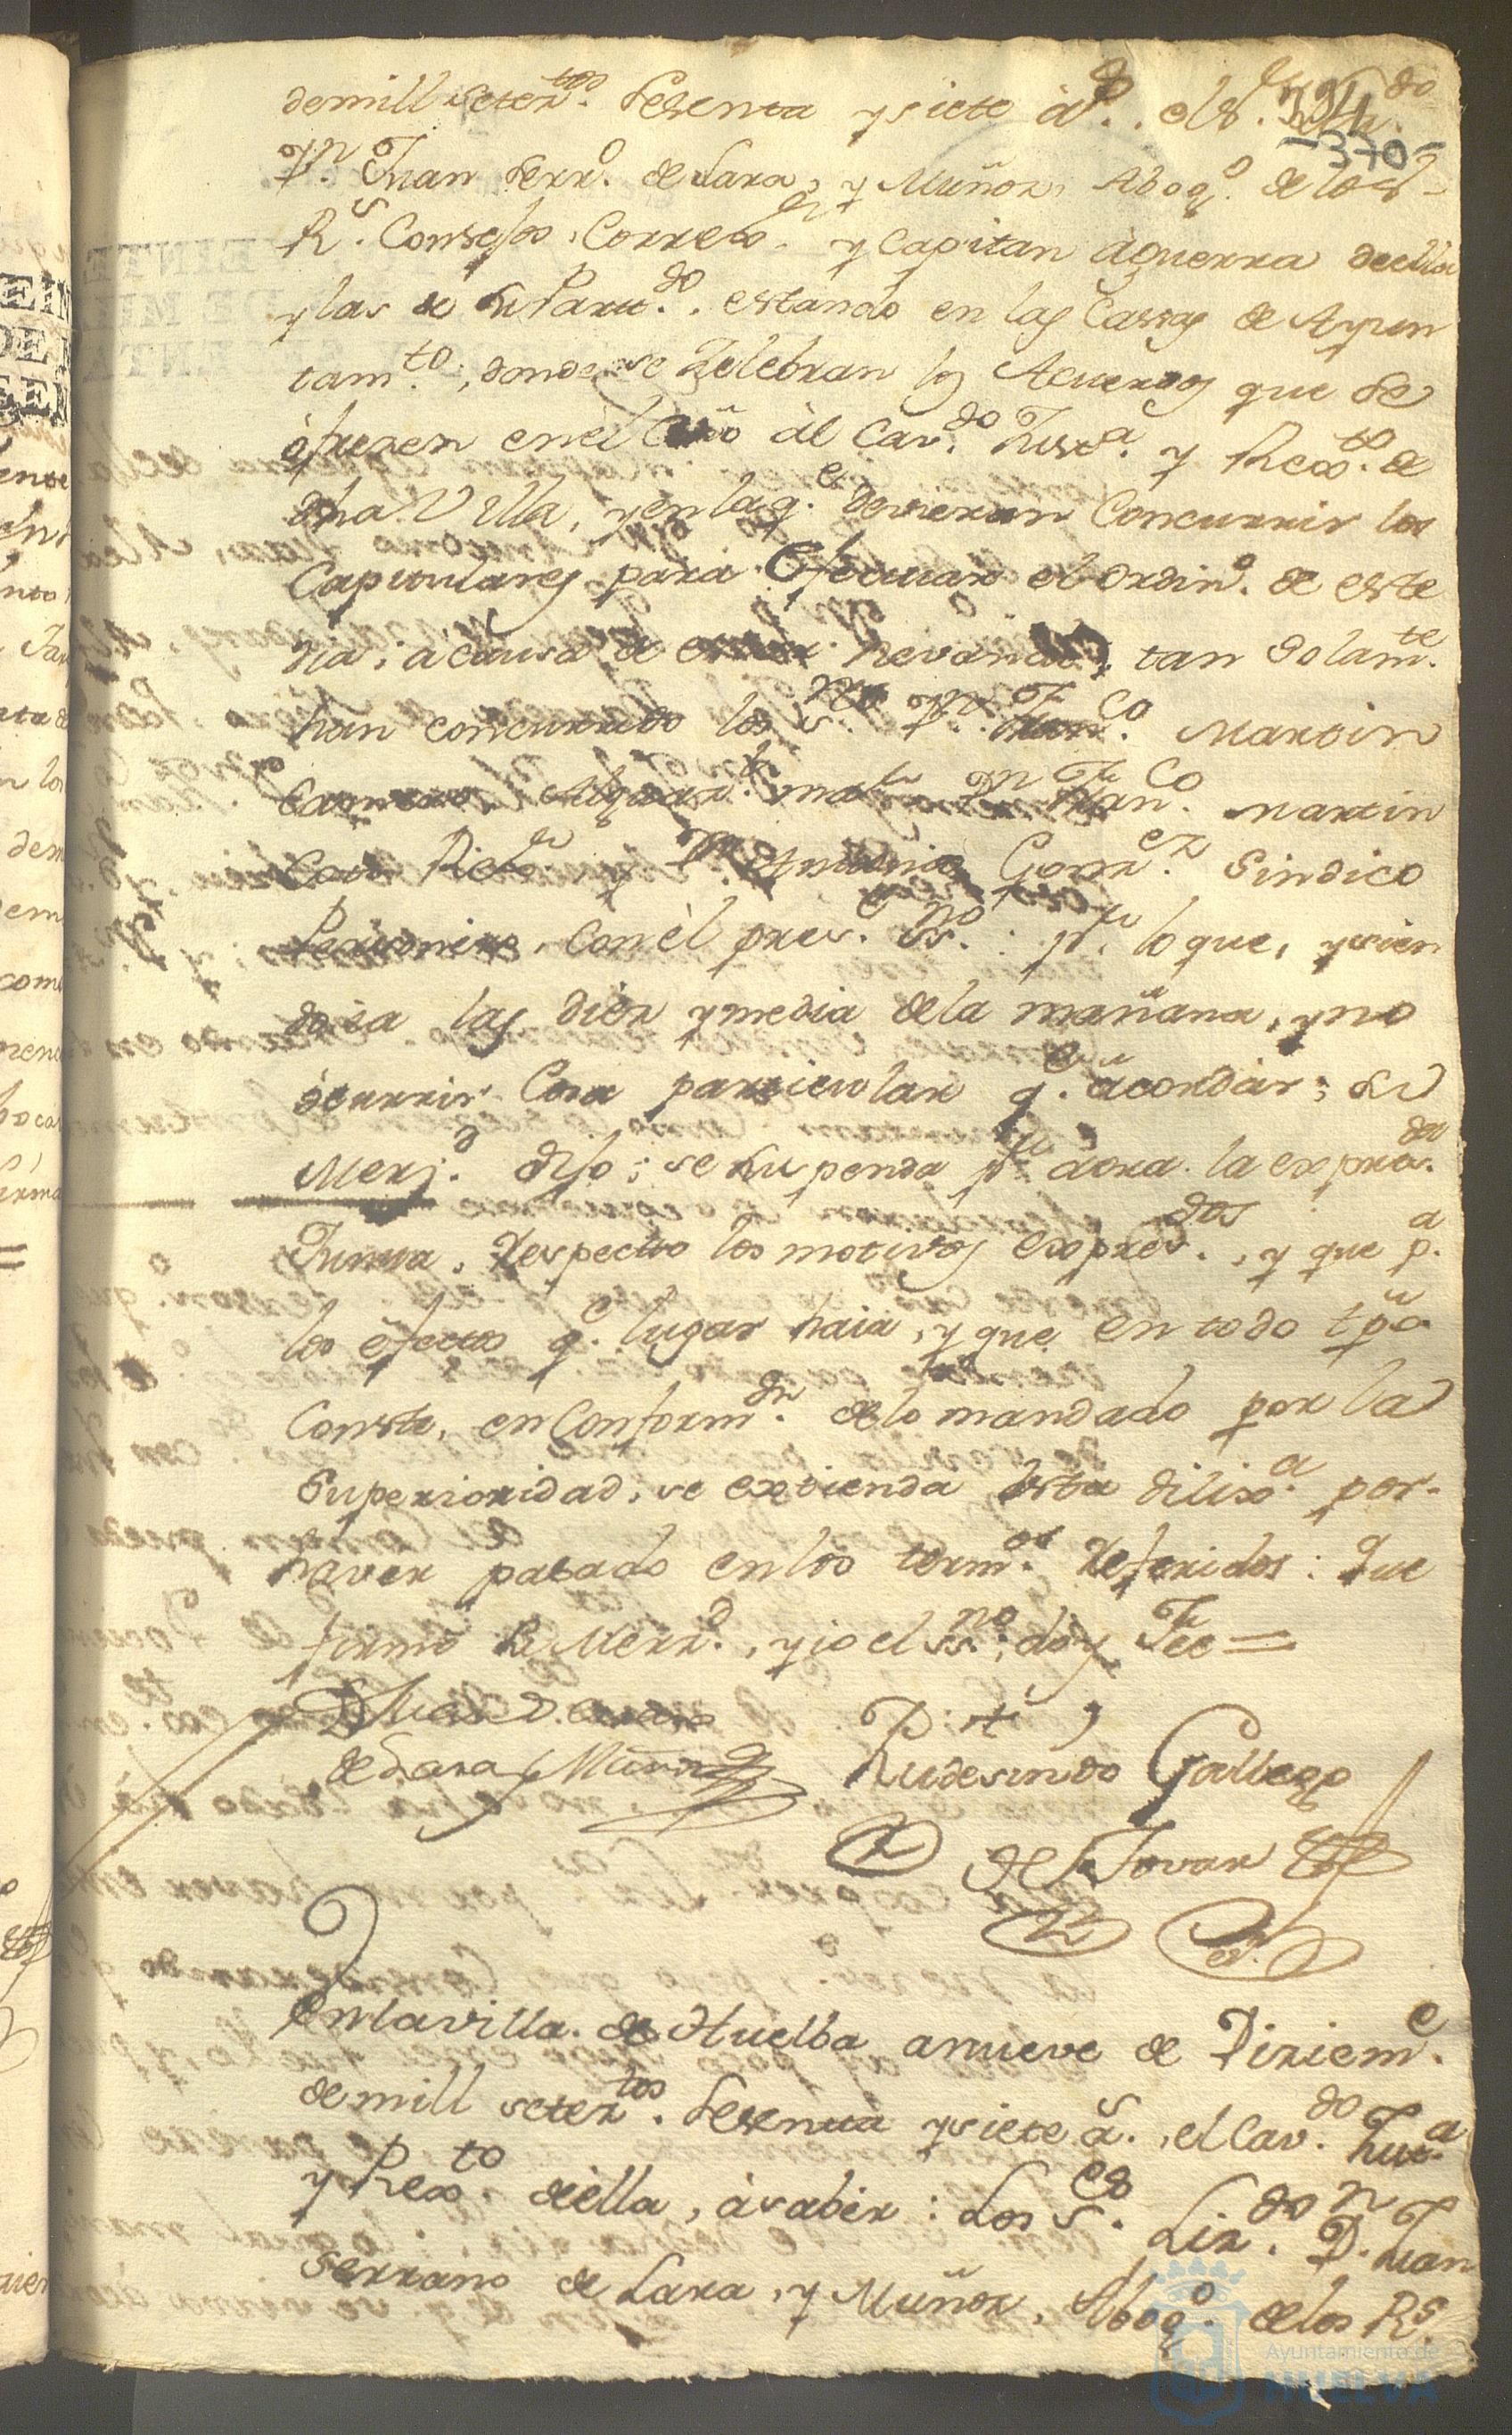 de mill setez.tos Sesenta y siete à.s el S.r Liz.do
-370-
D.n Juan Serr.o de Lara, y Muñoz, Abog.o de los
R.s Consejos, Correx.or y Capitan à guerra de ella
y las de su Part.do, estando en las Cassas de Ayun
tam.to, donde se Zelebran los Acuerdos que se
ofrezen en el Año àl Cav.do Just.a y Rex.to de
dha Villa, y en la q.e devieran Concurrir los
Capitulares para Efectuar el ordin.o de este
dia; à causa de tan solam.te
han concurrido los S.res D.n Fran.co Martin
Alguaz.l m.or D.n Fran.co Martin
Rex.or y D.n Antonio Gonz.ez Sindico
Personero, con èl pres.te ss.no: p.r lo que, y sien
do ya las diez y media de la mañana, y no
òcurrir Cosa particular q.e acordar; su
Merz.d dijo; se suspenda p.r aora la expres.da
Junta, respecto los motivos expres.dos, y que p.a
los èfectos q.e lugar haia, y que en todo tpõ
Conste, en Conform.d de lo mandado por la
Superioridad, se extienda esta dilix.a por
haver pasado en los term.os referidos: Que
firmò su Merz.d, y io el ss.no, doy Fee =
de Lara y Muñoz
Rudesindo Gallego
de Tovar
En la villa de Huelba a nueve de Diziem.e
de mill setez.tos Sesenta y siete a.s, el Cav.do Just.a
y Rex.to de ella, à saber: Los S.es Liz.do D.n Juan
Serrano de Lara, y Muñoz, Abog.o de los R.s
Ayuntamiento de
HUELVA